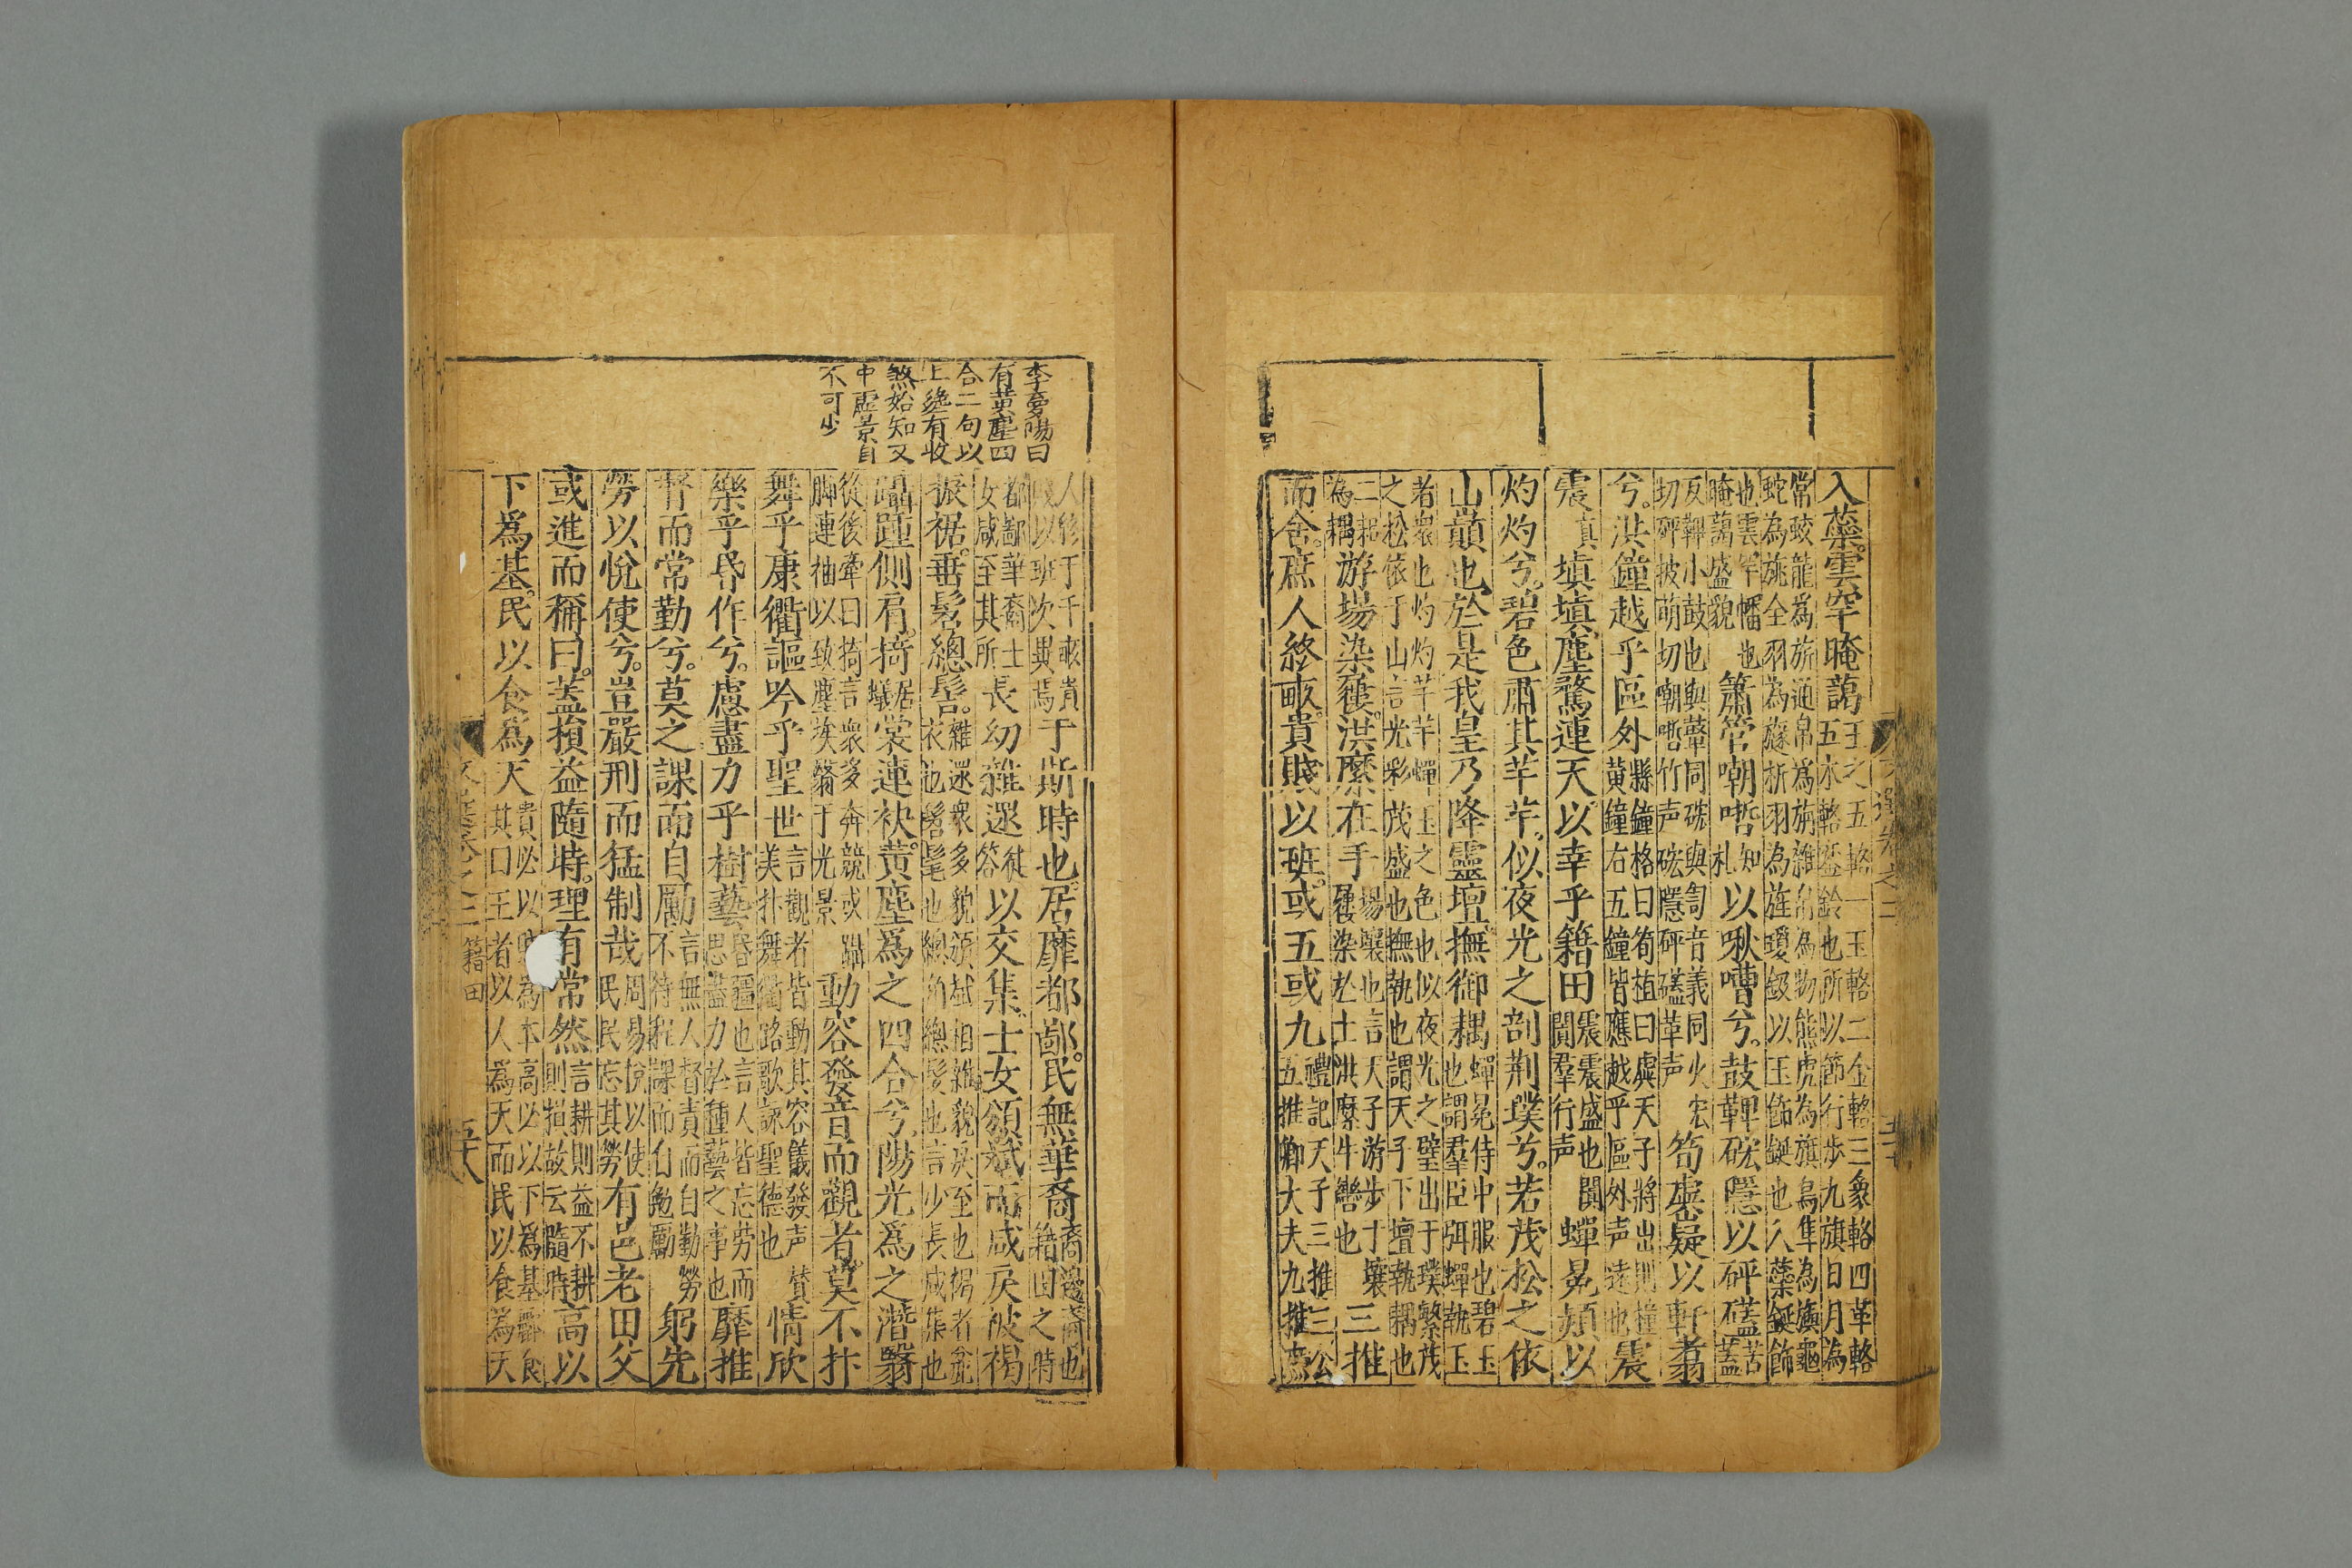 入蘂雲罕晻藹王之五輅一玉輅二金輅三象輅四革輅五木輅
鈴也所以節行步九旗日月為常蛟龍為旂通帛為旃雜帛為物熊虎為旗鳥隼為旟龜蛇為旐全羽為旞析羽為旌
鈒以玉飾鈒也入蘂鈒飾也雲罕幡也晻藹盛貌簫管嘲哳知札以啾嘈兮鼓鞞硡隱以砰磕苦蓋
反鞞小鼓也與鼙同硡與訇音義同火宏切砰披萌切嘲哳竹声硡隱砰磕革声筍虡嶷以軒翥
兮洪鐘越乎區外縣鐘格曰筍植曰虡天子將出則撞黃鐘右五鐘皆應越乎區外声遠也震
震真塡塡塵騖連天以幸乎籍田震震盛也闐闐羣行声蟬冕頴以
灼灼兮碧色肅其芊芊似夜光之剖荆璞兮若茂松之依
山巔也於是我皇乃降靈壇撫御耦蟬冕侍中服也碧玉也謂羣臣弭蟬執玉
者衆也灼灼芊芊蟬玉之色也似夜光之璧出于璞繁茂之松依于山言光彩茂盛也撫執也謂天子下壇執耦也
二耜為耦游場染屨洪縻在手場壤也言天子游步于壤屨染於土洪縻牛轡也三推
而舍庶人終畝貴賤以班或五或九禮記天子三推三公五推卿大夫九推庶
李憂陽曰
有黃塵四
合二句以
上纔有收
煞始知又
中虛景自
不可少
人終于千畝貴賤以班次異焉于斯時也居靡都鄙民無華裔裔邊裔也籍田之時
都鄙華裔士女咸至其所長幼雜遝徒答以交集士女頒斌而咸戾被褐
振裾垂髫總髻雜遝衆多貌頒斌相雜貌戾至也褐者
衣也髫髦也總角總髮也言少長咸集也
躡踵側肩掎居蟻裳連袂黃塵為之四合兮陽光為之潛翳
從後牽曰掎言衆多奔競或躡脚連袖以致塵埃翳于光景動容發音而觀者莫不抃
舞乎康衢謳吟乎聖世言觀者皆動其容儀發声賛美抃舞衢路歌詠聖德也情欣
樂乎昏作兮慮盡力乎樹藝昏彊也言人皆忘劳而思盡力於種藝之事也靡推
督而常勤兮莫之課而自厲言無人督責而自勤勞不待程課而自勉勵躬先
勞以悅使兮豈嚴刑而猛制哉周易悅以使民民忘其勞有邑老田父
或進而稱曰蓋損益隨時理有常然言耕則益不耕則損故云隨時高以
下為基民以食為天貴必以賤為本高必以下為基酈食其曰王者以人為天而民以食為天
籍田